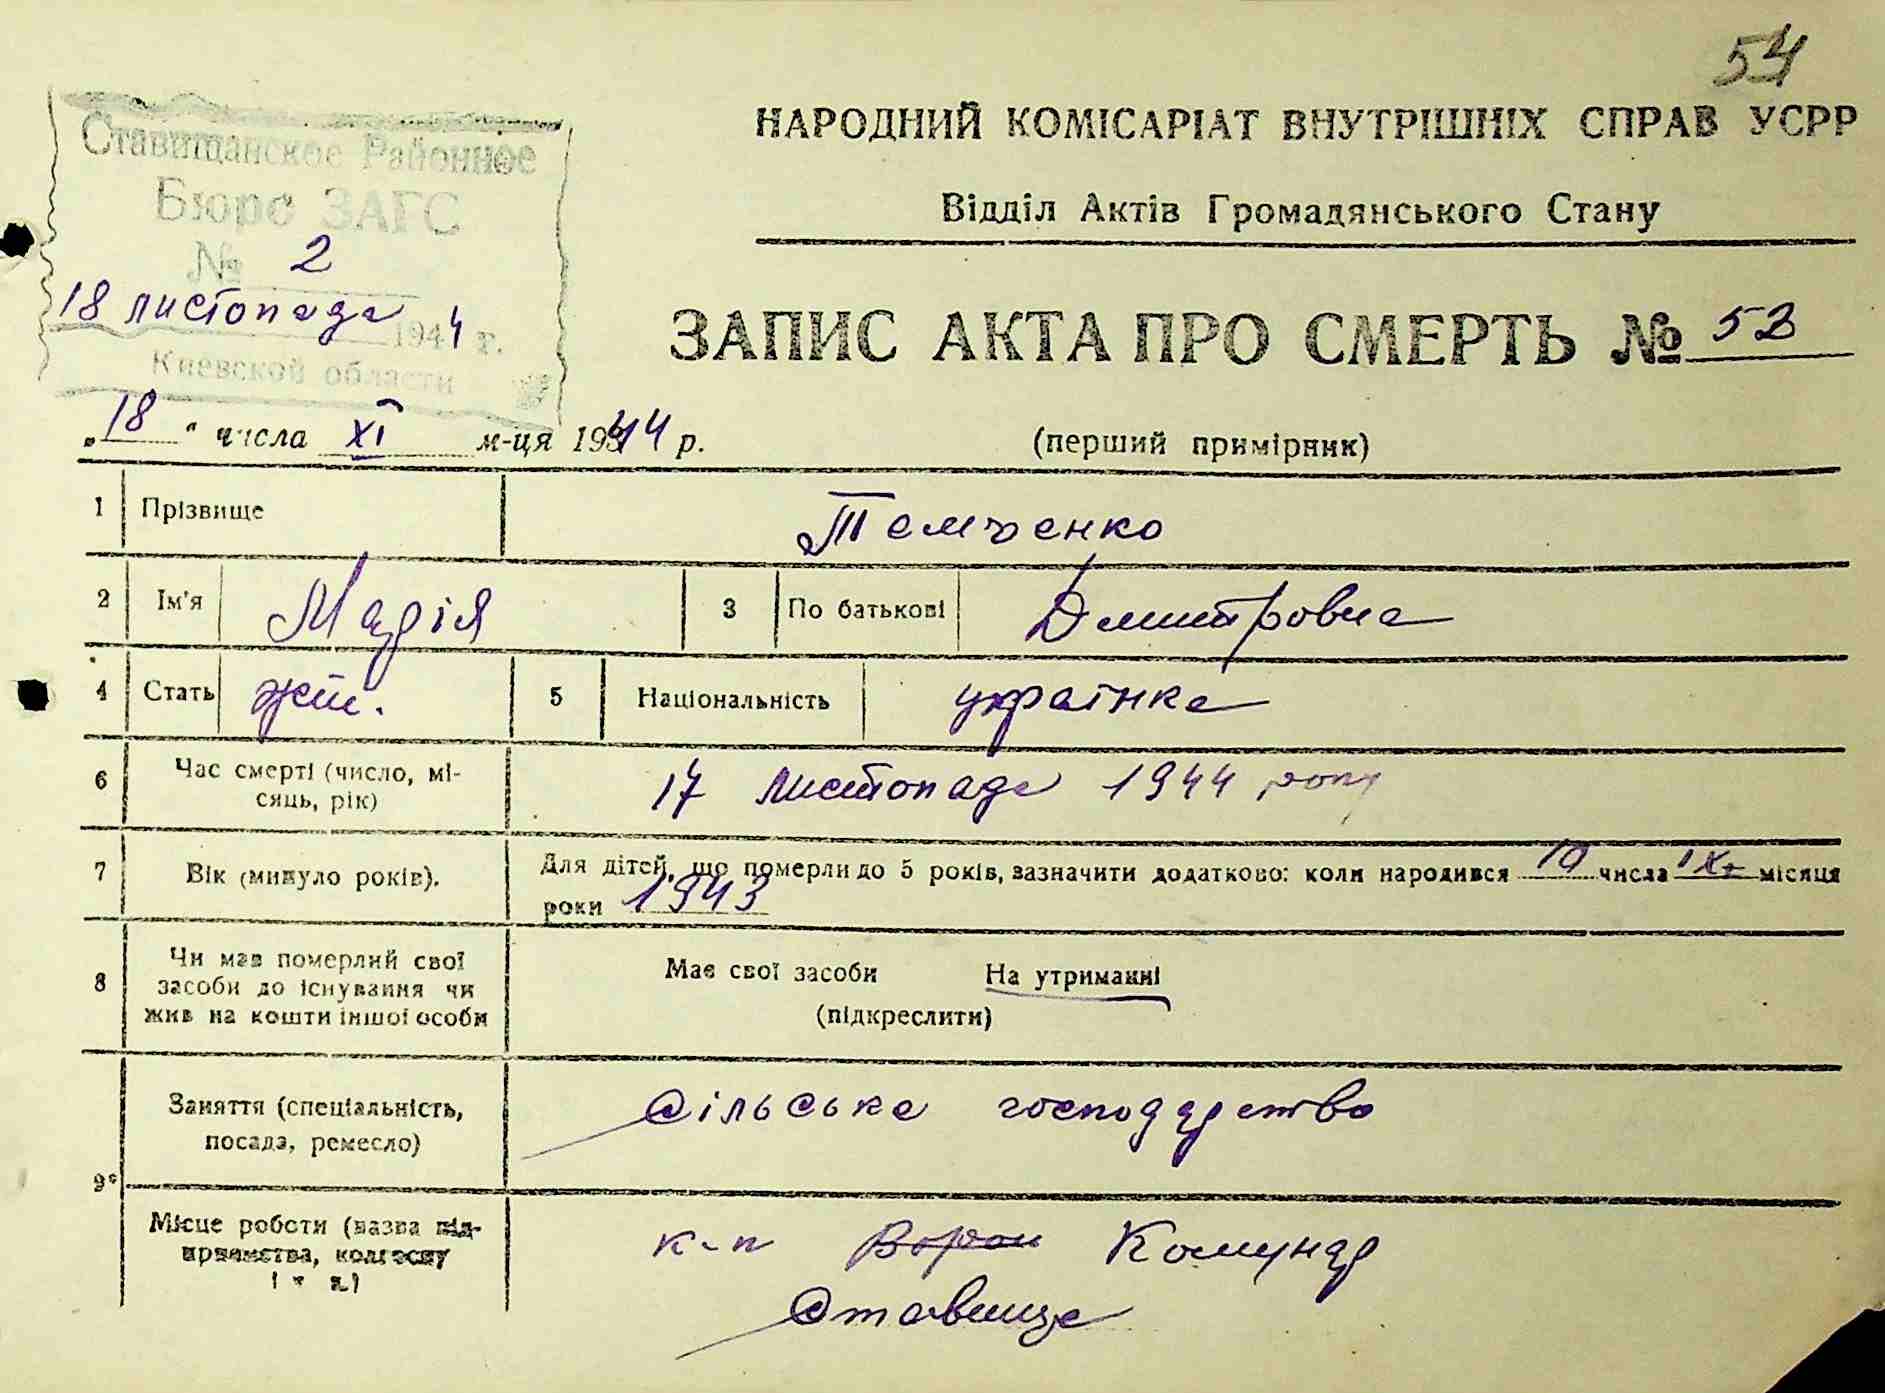 54
НАРОДНИЙ КОМІСАРІАТ ВНУТРІШНІХ СПРАВ УСРР
Відділ Актів Громадянського Стану
Ставищанское Районное
Бюро ЗАГС
№ 2
18 листопада 1944 г.
Киевской области
ЗАПИС АКТА ПРО СМЕРТЬ № 52
„18“ числа XI м-ця 1944 р.
(перший примірник)
1 Прізвище Темченко
2 Ім'я Марія 3 По батькові Дмитровна
4 Стать жін. 5 Національність українка
6 Час смерті (число, мі-
сяць, рік) 17 листопада 1944 року
7 Вік (минуло років). Для дітей, що померли до 5 років, зазначити додатково: коли народився 10 числа IX місяця
роки 1943
8 Чи мав померлий свої
засоби до існування чи
жив на кошти іншої особи
Має свої засоби На утриманні
(підкреслити)
9 Заняття (спеціальність,
посада, ремесло) Сільське господарство
Місце роботи (назва під-
приємства, колгоспу
і т. д.)
к-п Комунар
Ставище